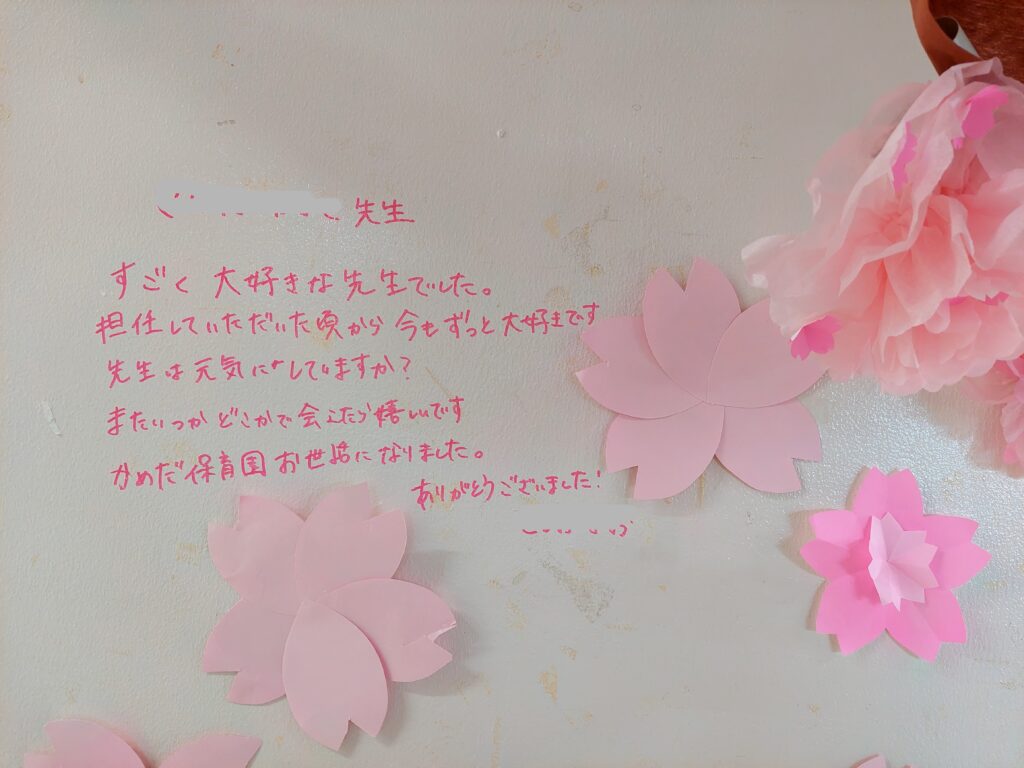 先生
すごく 大好きな先生でした。
担任していただいた頃から 今もずっと大好きです
先生は元気にしていますか?
またいつかどこかで会えたら嬉しいです
かめだ保育園お世話になりました。
ありがとうございました!